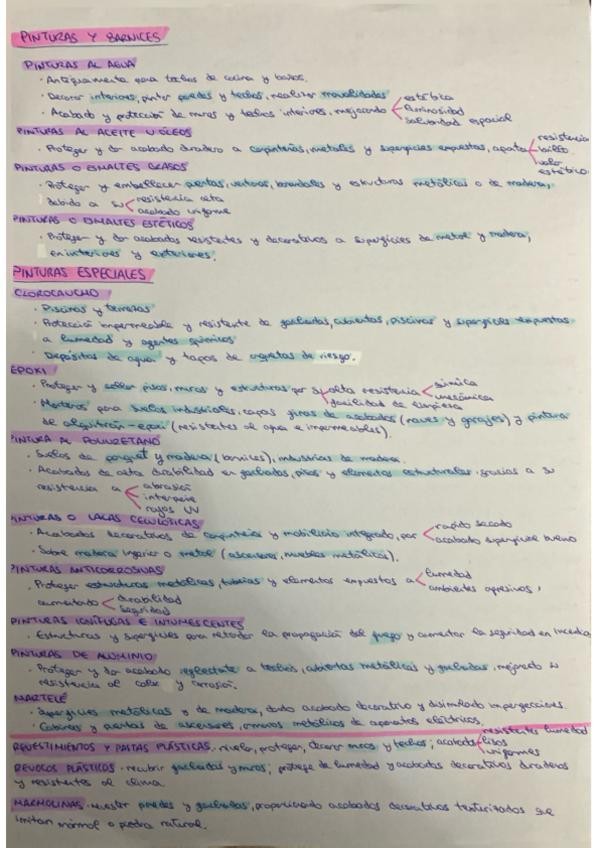 PINTURAS Y BARNICES
PINTURAS AL AGUA
· Antiguamente para techos de cocina y baños.
· Decorar interiores, pintar paredes y techos, realizar
· Acabado y protección de muros y techos interiores, mejorando < estética
luminosidad
salubridad espacial
PINTURAS AL ACEITE U ÓLEOS
· Proteger y dar acabado duradero a carpinterías, metales y superficies expuestas, aporta < resistencia
brillo
valor estético.
PINTURAS O ESMALTES GRASOS
· Proteger y embellecer puertas, ventanas, barandales y estructuras metálicas o de madera,
debido a su < resistencia alta
acabado uniforme
PINTURAS O ESMALTES
· Proteger y dar acabados resistentes y decorativos a superficies de metal y madera,
en interiores y exteriores.
PINTURAS ESPECIALES
CLOROCAUCHO
· Piscinas y terrazas
· Protección impermeable y resistente de fachadas, cubiertas, piscinas y superficies expuestas
a humedad y agentes químicos
· Depósitos de agua y tapas de arquetas de riesgo.
EPOXI
· Proteger y sellar pisos, muros y estructuras por su < alta resistencia < química
mecánica
facilidad de limpieza
· Morteros para suelos industriales, capas finas de acabados (naves y garajes) y pintura
de alquitrán-epoxi (resistentes al agua e impermeables).
PINTURA AL POLIURETANO
· Suelos de parquet y madera (barnices), industrias de madera.
· Acabados de alta durabilidad en fachadas, pisos y elementos estructurales, gracias a su
resistencia a < abrasión
intemperie
rayos UV
PINTURAS O LACAS CELULÓSICAS
· Acabados decorativos de carpintería y mobiliario integrado, por < rapido secado
acabado superficie bueno
· Sobre madera o metal (ascensores, muebles metálicos).
PINTURAS ANTICORROSIVAS
· Proteger estructuras metálicas, tuberías y elementos expuestos a < humedad
ambientes agresivos,
aumentado < durabilidad
seguridad
PINTURAS IGNÍFUGAS E INTUMESCENTES
· Estructuras y superficies para retardar la propagación del fuego y aumentar la seguridad en incendio
PINTURAS DE ALUMINIO
· Proteger y dar acabado a techos, cubiertas metálicas y fachadas, mejorando su
resistencia al calor y corrosión.
MARTELÉ
· Superficies metálicas y de madera, dando acabado decorativo y disimulado imperfecciones.
· Cabinas y puertas de ascensores, armarios metálicos de aparatos eléctricos.
REVESTIMIENTOS Y PASTAS PLÁSTICAS · nivelar, proteger, decorar muros y techos; acabados < resistentes humedad
lisos
uniformes
REVOCOS PLÁSTICOS · recubrir fachadas y muros; protege de humedad y acabados decorativos duraderos
y resistentes al clima.
MARMOLINAS · revestir paredes y fachadas, proporcionando acabados decorativos texturizados que
imitan mármol o piedra natural.